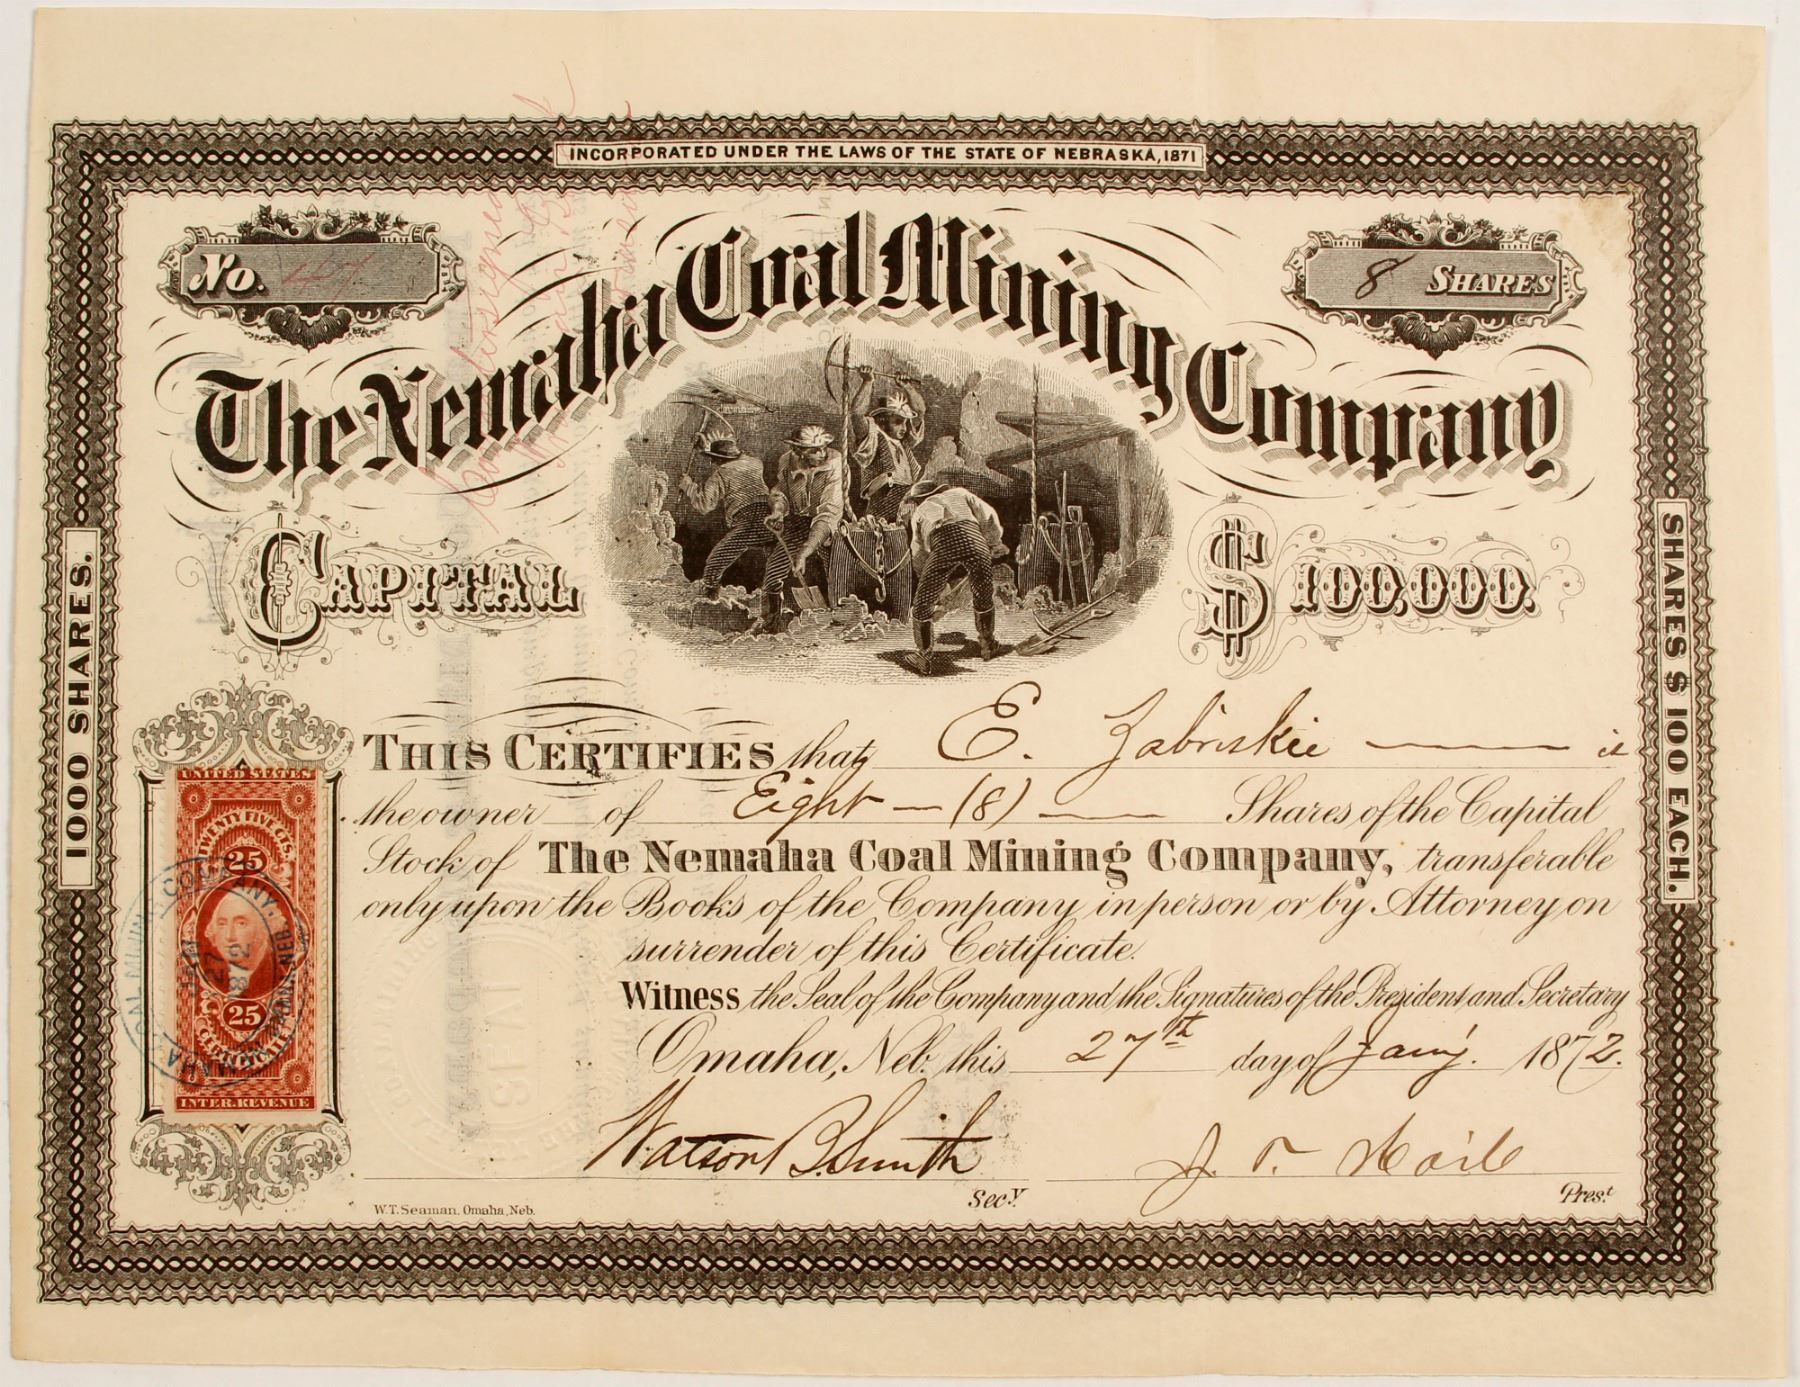 INCORPORATED UNDER THE LAWS OF THE STATE OF NEBRASKA, 1871
No. 
8 SHARES
The Nemaha Coal Mining Company
CAPITAL $100,000.
1000 SHARES.
SHARES $100 EACH.
THIS CERTIFIES that E. Zabriskie is
the owner of Eight - (8) Shares of the Capital
Stock of The Nemaha Coal Mining Company, transferable
only upon the Books of the Company in person or by Attorney on
surrender of this Certificate.
Witness the Seal of the Company and the Signatures of the President and Secretary
Omaha, Neb. this 27th day of Jany. 1872.
Watson B. Smith
Secy.
Prest
W.T. Seaman, Omaha, Neb.
UNITED STATES
TWENTY FIVE CTS.
25
JAN
27
1872
25
CERTIFICATE
INTER. REVENUE